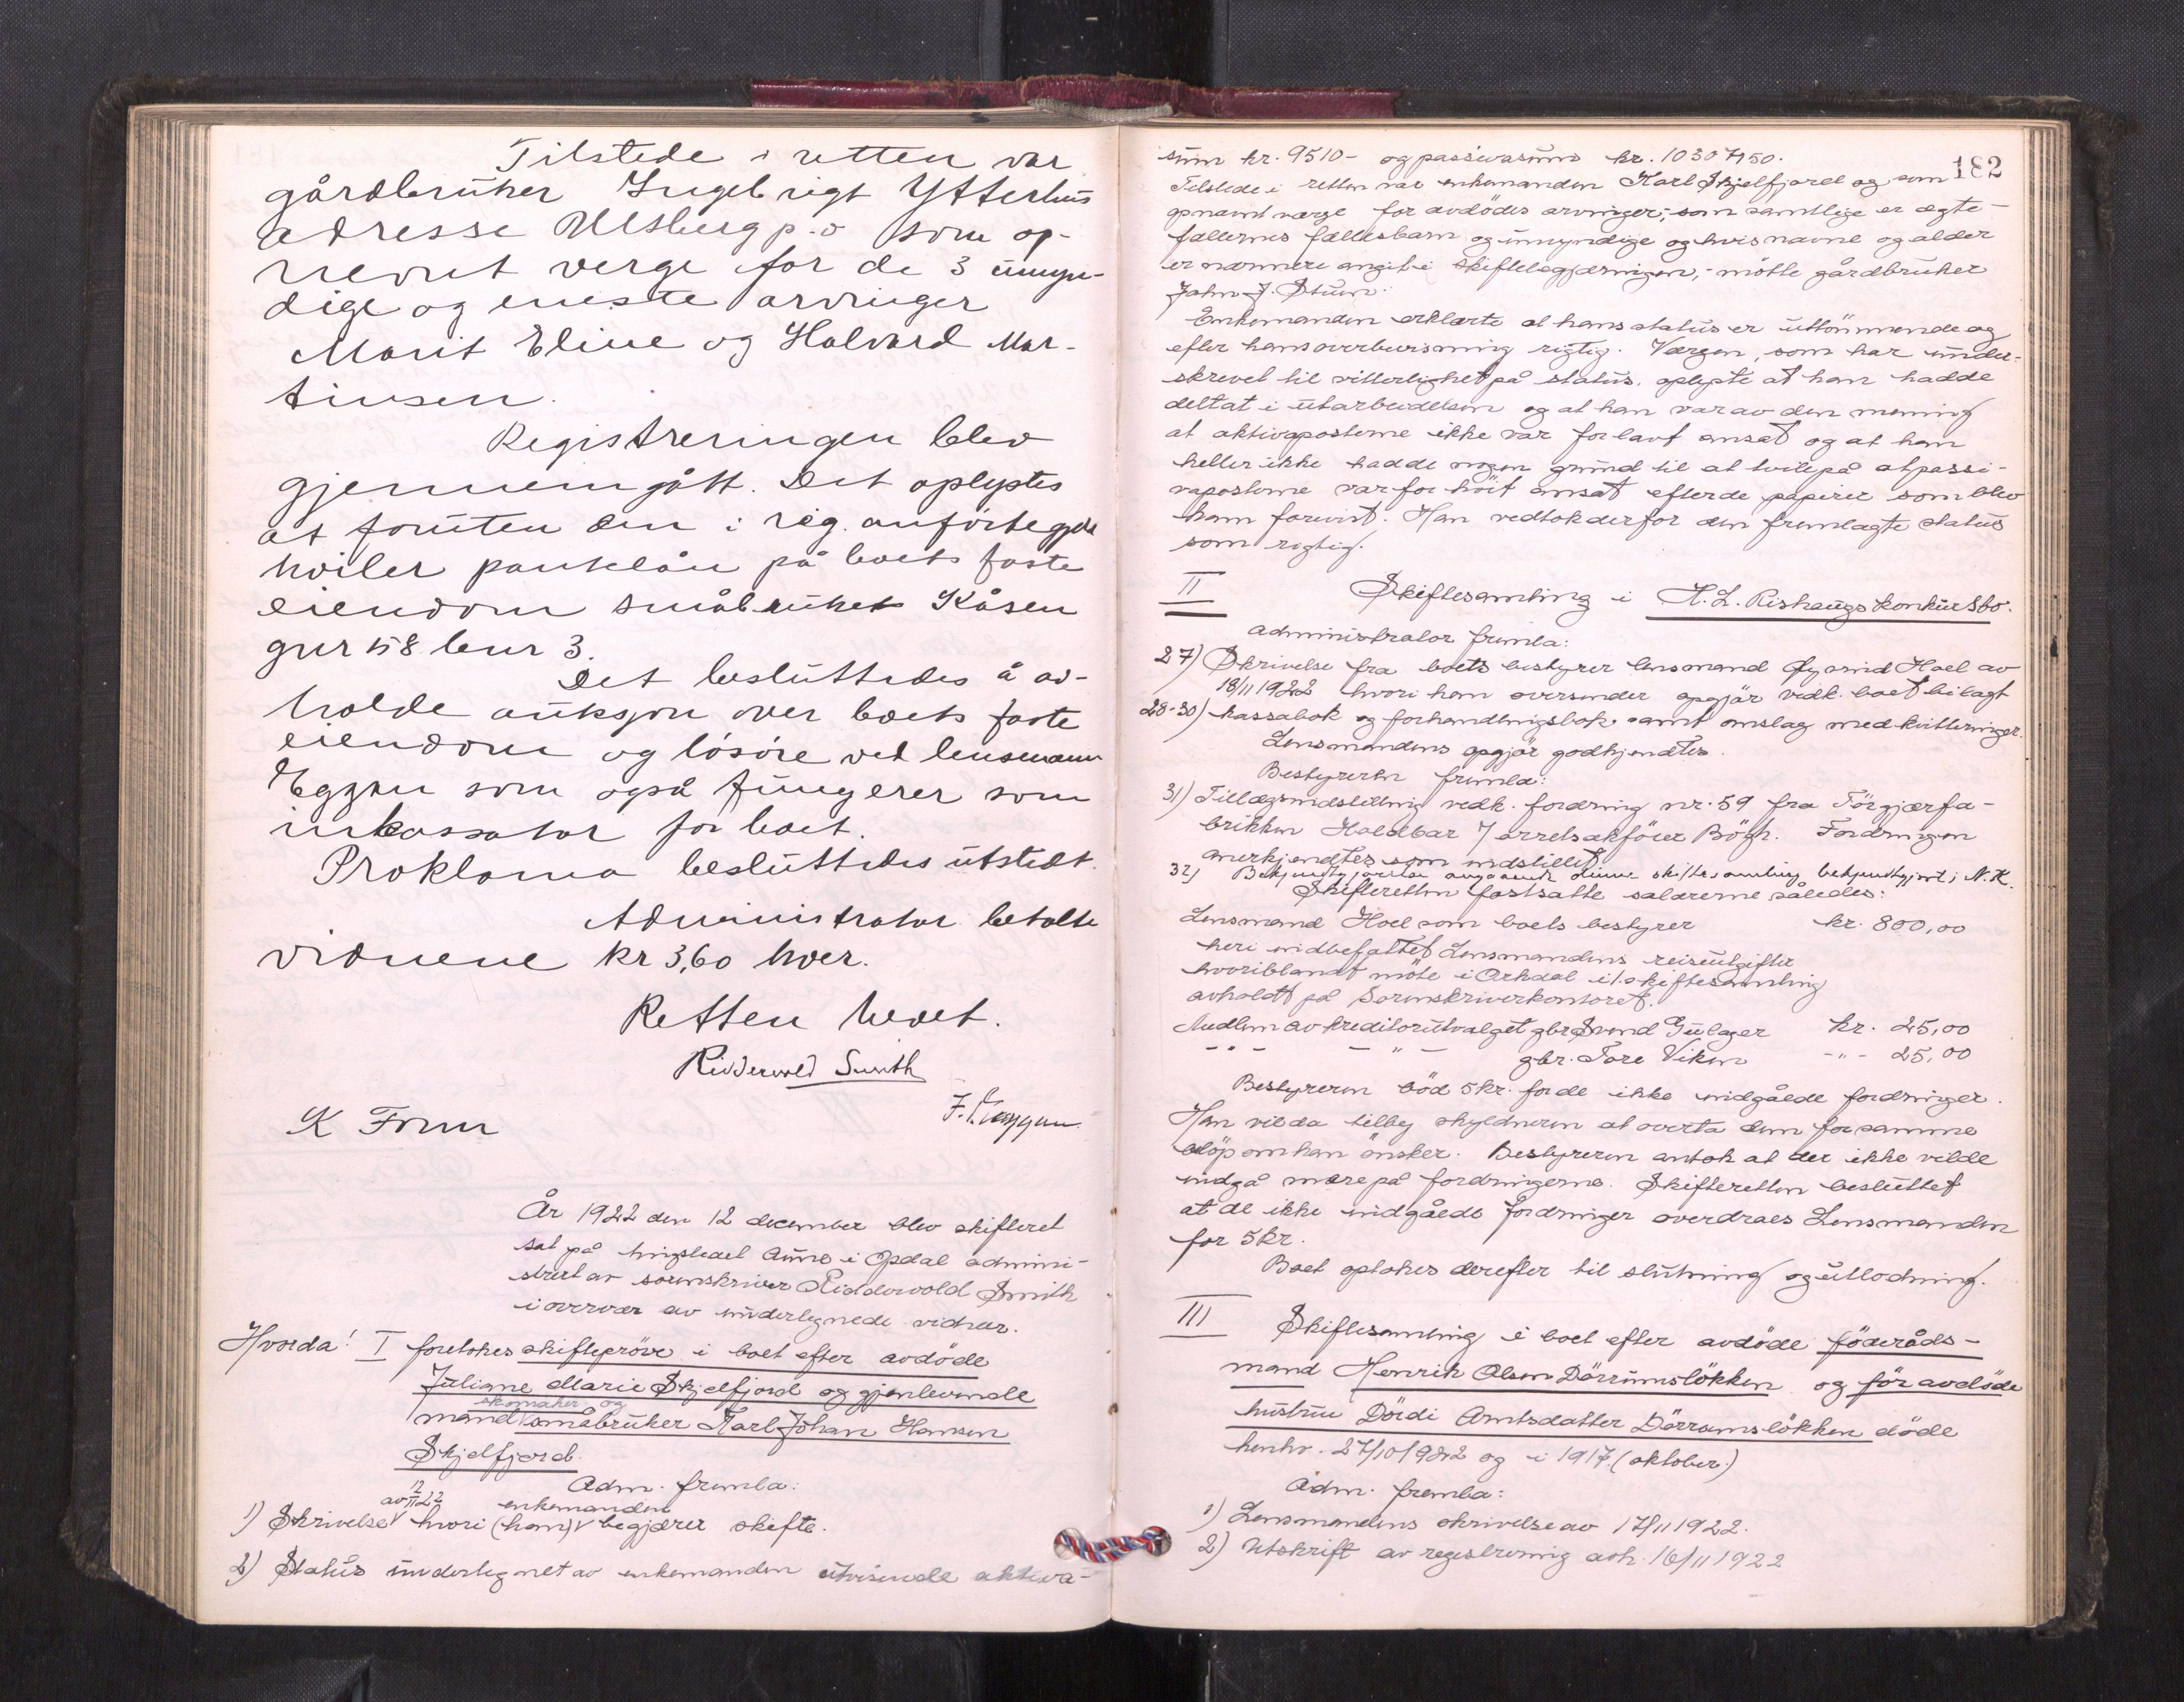 Tilstede i retten var
gårdbruker Ingebrigt Ytterhus
adresse Ulsberg p.o som op-
nevnt verge for de 3 umyn-
dige og eneste arvinger
Marit Eline og Halvard Mar-
tinsen.
Registreringen blev
gjennemgått. Det oplystes
at foruten den i reg. anförte gjeld
hviler pantelån på boets faste
eiendom småbruket Kåsen
gnr 158 bnr 3.
Det besluttedes å av-
holde auksjon over boets faste
eiendom og lösöre ved lensmann
Eggan som også fungerer som
inkassator for boet.
Proklama besluttedes utstedt.
Administrator betalte
vidnene kr 3,60 hver.
Retten hevet.
Ridderwold Smith
K Frun
År 1922 den 12 december blev skifteret
sat på tingstedet Aune i Opdal admini-
strert av sorenskriver Ridderwold Smith
i overvær av undertegnede vidner.
Hvorda! I foretokes skifteprøve i boet efter avdöde
Juliane Marie Skjelfjord og gjenlevende
skomaker og
mand småbruker Karl Johan Hansen
Skjelfjord.
Adm. fremla:
av 17/11 22 enkemanden
1) Skrivelse hvori (han) begjærer skifte.
2) Status undertegnet av enkemanden utvisende aktiva-
182
sum kr. 9510- og passivasum kr. 10307,50.
Tilstede i retten var enkemanden Karl Skjelfjord og som
opnævnt værge for avdödes arvinger; som samtlige er ægte-
fællernes fællesbarn og umyndige og hvis navne og alder
er nærmere angit i skiftebegjæringen, - mötte gårdbruker
John J. Stuen.
Enkemanden erklærte at hans status er uttömmende og
efter hans overbevisning rigtig. Værgen, som har under-
skrevet til vitterlighet på status, oplyste at han hadde
deltat i utarbeidelsen og at han var av den mening
at aktivaposterne ikke var for lavt ansat og at han
heller ikke hadde nogen grund til at tvile på at passi-
vaposterne var for höit ansat efter de papirer som blev
ham forevist. Han vedtok derfor den fremlagte status
som rigtig.
II Skiftesamling i H. L. Rishaugs konkursbo.
Administrator fremla:
27) Skrivelse fra boets bestyrer lensmand Øyvind Hoel av
18/11 1922 hvori han oversender opgjör vedk. boet bilagt
28-30) kassabok og forhandlingsbok samt omslag med kvitteringer.
Lensmandens opgjör godkjendtes.
Bestyreren fremla:
31) Tillægsindstilling vedk. fordring nr. 59 fra Törgjærfa-
brikken Holdbar v/ overretssakförer Bögh. Fordringen
anerkjendtes som indstillet.
32) Bekjendtgjörelse angaaende denne skiftesamling bekjendtgjort i N.K.
Skifteretten fastsatte salærerne således:
Lensmand Hoel som boets bestyrer kr. 800,00
heri indbefattet Lensmandens reiseutgifter
hvoriblandt möte i Orkdal i 1. skiftesamling
avholdt på Sorenskriverkontoret.
Medlem av kreditorutvalget gbr Svend Gulager kr. 25,00
- " - - " - gbr. Tore Viken - " - 25,00
Bestyreren böd 5 kr. for de ikke indgåede fordringer.
Han vil da tilby skyldneren at overta dem for samme
belöp om han önsker. Bestyreren antok at der ikke vilde
indgå mere på fordringerne. Skifteretten besluttet
at de ikke indgåede fordringer overdraes Lensmanden
for 5 kr.
Boet optokes derefter til slutning og utlodning.
III Skiftesamling i boet efter avdöde föderåds-
mand Henrik Olsen Dörrumslökken og för avdöde
hustru Dördi Arntsdatter Dörrumslökken döde
henhv. 27/10 1922 og i 1917. (oktober.)
Adm. fremla:
1) Lensmandens skrivelse av 17/11 1922.
2) Utskrift av registrering avh. 16/11 1922